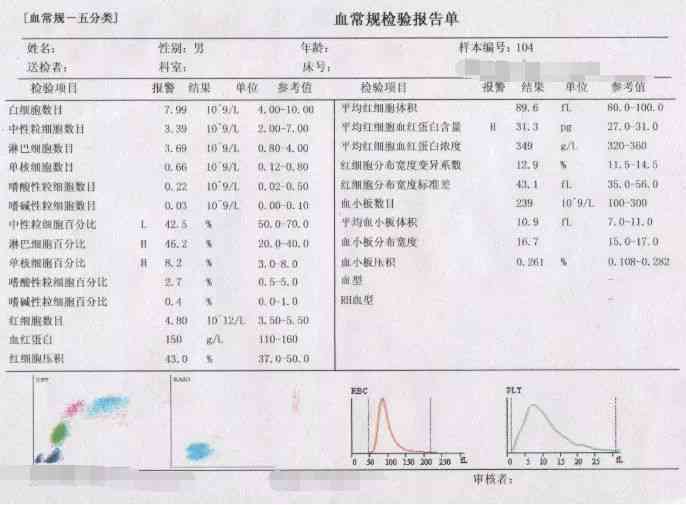 [血常规-五分类] 血常规检验报告单
姓名: 性别: 男 年龄: 样本编号: 104
送检者: 科室: 床号:
检验项目 报警 结果 单位 参考值 检验项目 报警 结果 单位 参考值
白细胞数目 7.99 10^9/L 4.00-10.00 平均红细胞体积 89.6 fL 80.0-100.0
中性粒细胞数目 3.39 10^9/L 2.00-7.00 平均红细胞血红蛋白含量 H 31.3 pg 27.0-31.0
淋巴细胞数目 3.69 10^9/L 0.80-4.00 平均红细胞血红蛋白浓度 349 g/L 320-360
单核细胞数目 0.66 10^9/L 0.12-0.80 红细胞分布宽度变异系数 12.9 % 11.5-14.5
嗜酸性粒细胞数目 0.22 10^9/L 0.02-0.50 红细胞分布宽度标准差 43.1 fL 35.0-56.0
嗜碱性粒细胞数目 0.03 10^9/L 0.00-0.10 血小板数目 239 10^9/L 100-300
中性粒细胞百分比 L 42.5 % 50.0-70.0 平均血小板体积 10.9 fL 7.0-11.0
淋巴细胞百分比 H 46.2 % 20.0-40.0 血小板分布宽度 16.7 15.0-17.0
单核细胞百分比 H 8.2 % 3.0-8.0 血小板压积 0.261 % 0.108-0.282
嗜酸性粒细胞百分比 2.7 % 0.5-5.0 血型 -
嗜碱性粒细胞百分比 0.4 % 0.0-1.0 RH血型 -
红细胞数目 4.80 10^12/L 3.50-5.50
血红蛋白 150 g/L 110-160
红细胞压积 43.0 % 37.0-50.0
BASO RBC PLT
0 50 100 150 200 250 fL 0 5 10 15 20 25 fL
审核者: